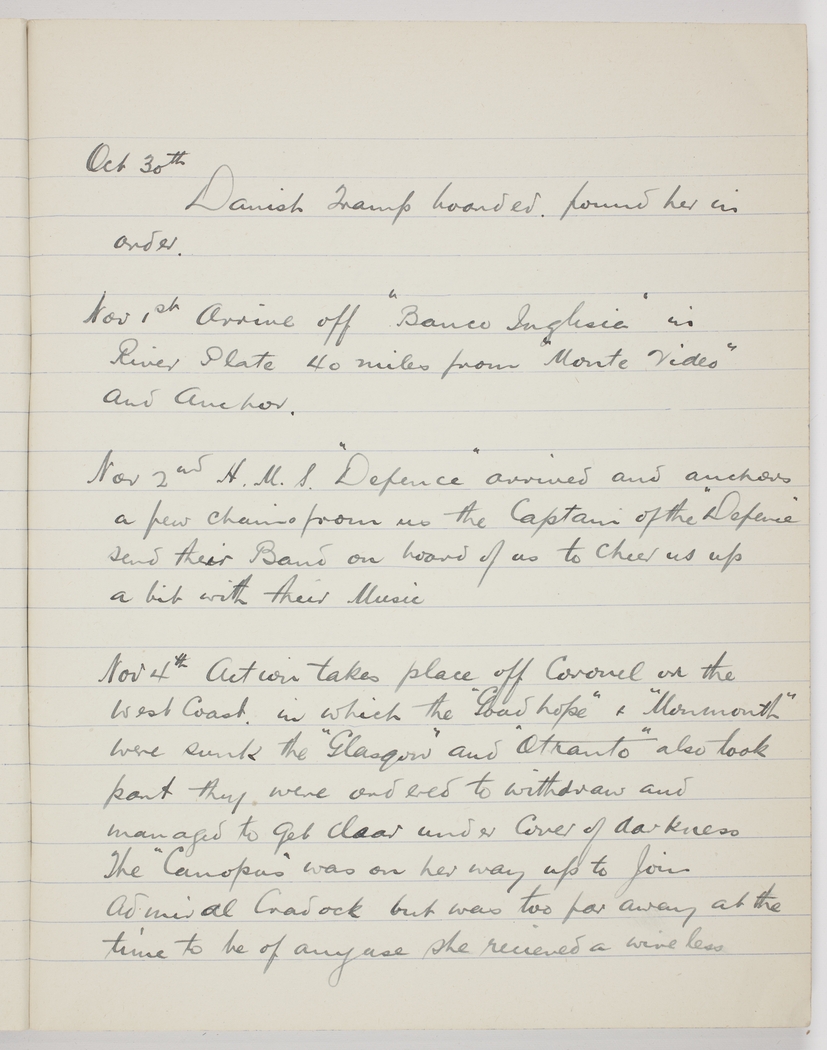 Oct 30th
Danish Tramp boarded. found her in
order.
Nov 1st Arrive off "Banco Inglesia" in
River Plate 40 miles from "Monte Video"
and Anchor.
Nov 2nd H. M. S. "Defence" arrived and anchors
a few chains from us the Captain of the "Defence
send their Band on board of us to cheer us up
a bit with their Music
Nov 4th Action takes place off Coronel on the
West Coast. in which the "Good hope" & "Monmouth"
were sunk the "Glasgow" and "Otranto" also took
part they were ordered to withdraw and
managed to get claar under Cover of darkness
The "Canopus" was on her way up to Join
Admiral Cradock but was too far away at the
time to be of any use she recieved a wireless